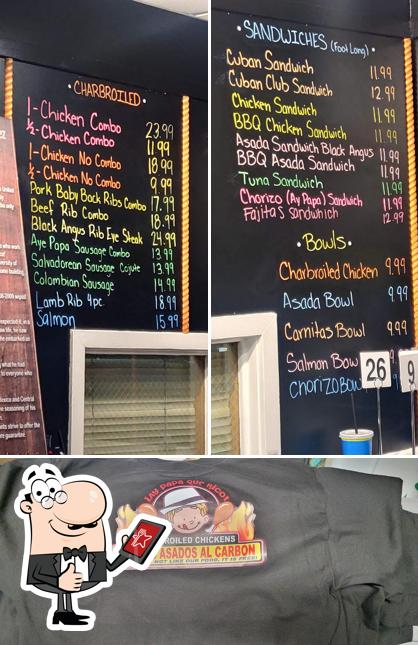 CHARBROILED
1-Chicken Combo 23.99
½-Chicken Combo 11.99
1-Chicken No Combo 18.99
½-Chicken No Combo 9.99
Pork Baby Back Ribs Combo 17.99
Beef Rib Combo 18.99
Black Angus Rib Eye Steak 24.99
Aye Papa Sausage Combo 13.99
Salvadorean Sausage Cojute 13.99
Colombian Sausage 14.99
Lamb Rib 4pc. 18.99
Salmon 15.99
SANDWICHES (Foot Long)
Cuban Sandwich 11.99
Cuban Club Sandwich 12.99
Chicken Sandwich 11.99
BBQ Chicken Sandwich 11.99
Asada Sandwich Black Angus 11.99
BBQ Asada Sandwich 11.99
Tuna Sandwich 11.99
Chorizo (Ay Papa) Sandwich 11.99
Fajitas Sandwhich 12.99
Bowls
Charbroiled Chicken 9.99
Asada Bowl 9.99
Carnitas Bowl 9.99
Salmon Bow
Chorizo Bow
26
9
¡AY PAPA QUE RICO!
ROILED CHICKENS
ASADOS AL CARBON
NOT LIKE OUR FOOD, IT IS FREE!